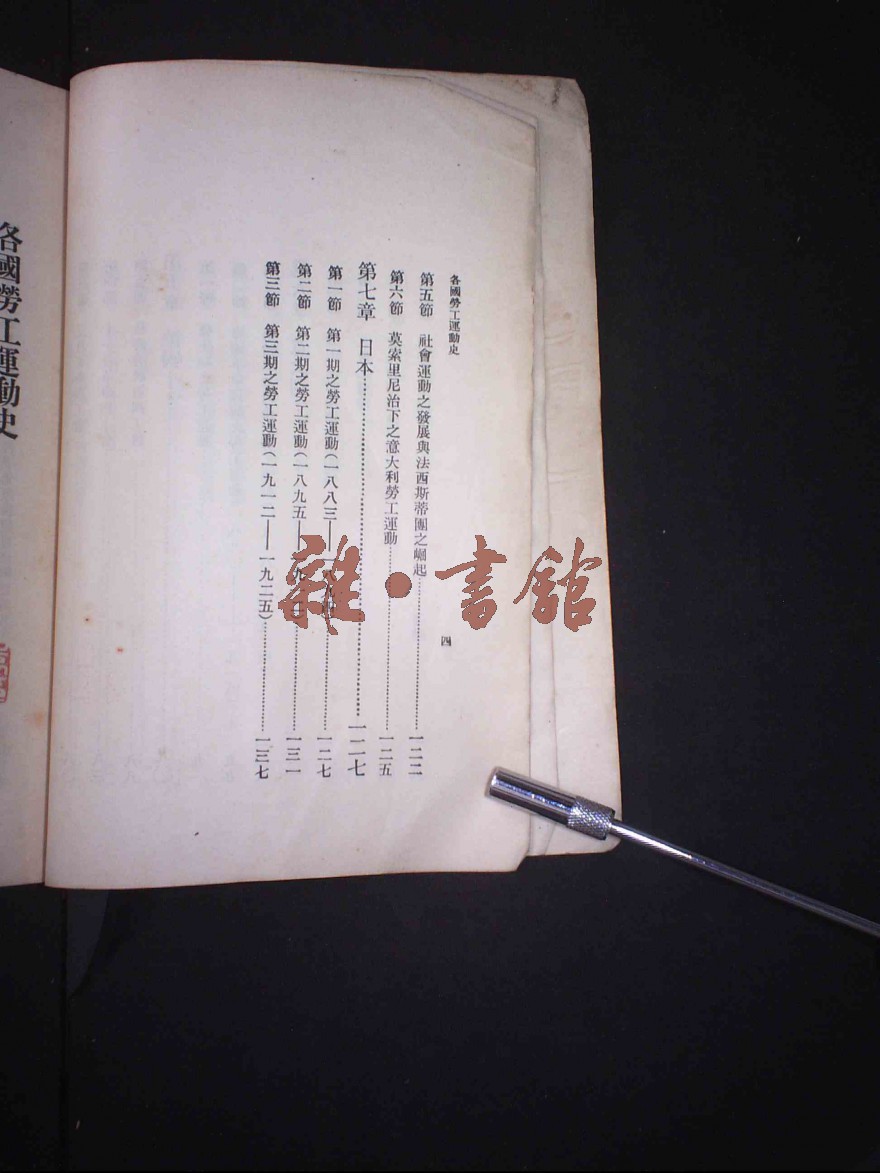 各國勞工運動史
四
第五節 社會運動之發展與法西斯蒂團之崛起……一二二
第六節 莫索里尼治下之意大利勞工運動……一二五
第七章 日本……一二七
第一節 第一期之勞工運動(一八八三——一八……一二七
第二節 第二期之勞工運動(一八九五——一九……一三一
第三節 第三期之勞工運動(一九一二——一九二五)……一三七
各國勞工運動史
雜·書館